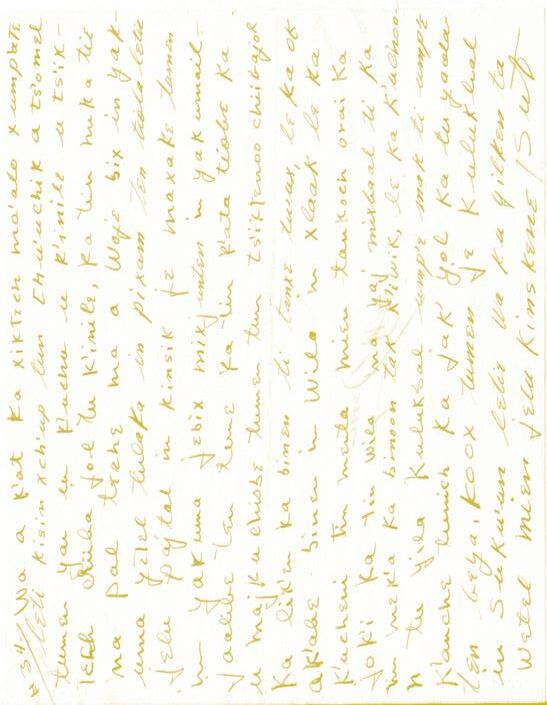 2 34/ Wa a k'at ka xiktech ma'alo x umplate
leti kisin xch'up tun ch'uuchik a tsomel
tumen yan u k'uchu u k'inile u tsik-
ichh ool tu k'inile, ka tin nuka tie
ma pal teche ma a woje bix in yak-
uma yetel tulaka in pixan ten tiola letie
jelu pajtal in kinsik je maxake tumen
in yakuma jebix mik unten in yakumail
yaalibe ten tene ka tin k'ata tiobe ka
u majku chisbe tumen tun tsiktenoo chiibajol
ka lik'en ka binen ti tenxe tuux, le ka ok
ak'abe binen in wile in xlaak le ka
k'ucheni tin menta mien tankoch orai ka
joki ka tin wila ma yaj mixbaal ti ka
in meka ka binoon tak kiiwik, le ka k'uchoo
n tu yila kulukbal umpe mak ti umpe
k'anche tunich ka jak' yol ka tu yaala
ten beya, koox tumen je kulukbal
in suku'un letie va ka yilken ta
wetel mien jelu kinskene / Suf